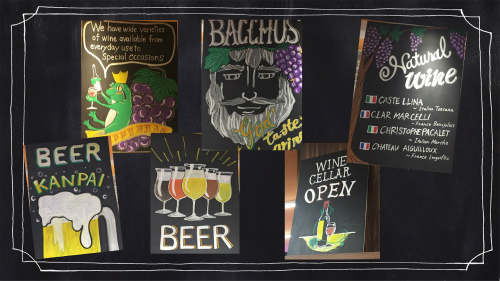 We have wide varieties
of wine available from
everyday use to
Special occasions
BACCHUS
God
taste
Natural
wine
CASTELLINA
~ Italian Toscana
CLAR MARCELLI
~ France Beaujolais
CHRISTOPHE PACALET
~ Italian Marche
CHATEAU AIGUILLOUX
BEER
KANPAI
BEER
WINE
CELLAR
OPEN